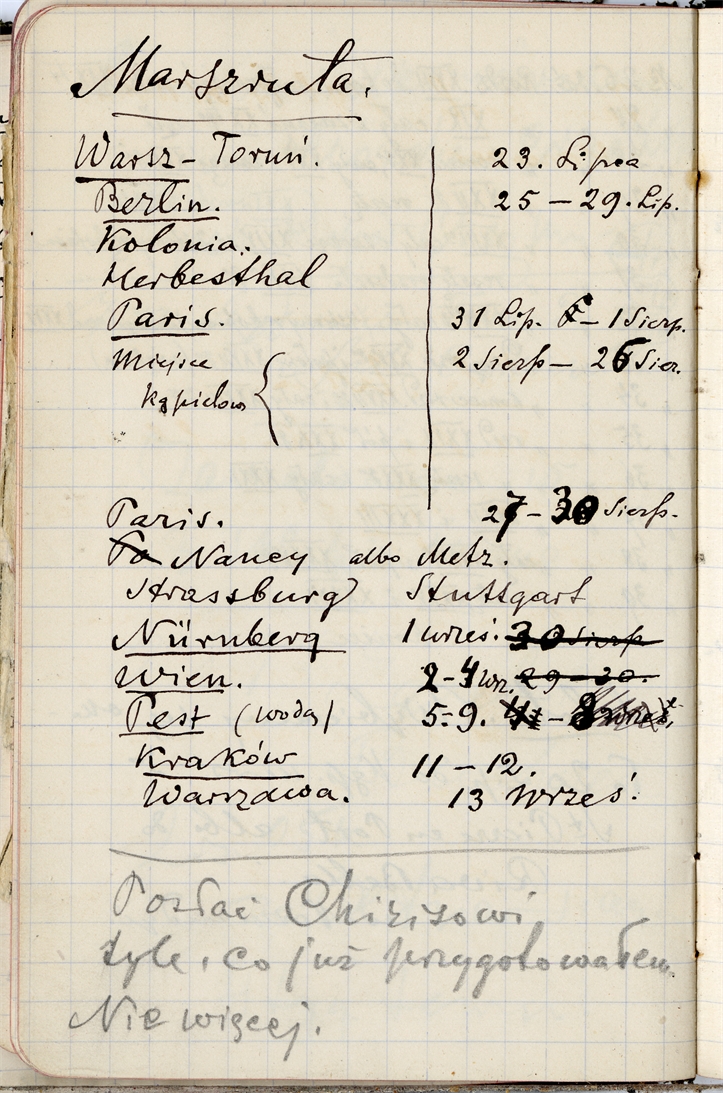 Marszruta.
Warsz - Toruń. 23. Lipca
Berlin. 25 - 29. Lip.
Kolonia.
Herbesthal
Paris. 31 Lip. - 1 Sierp.
Miejsce 2 Sierp - 26 Sier.
kąpielow
Paris. 27 - 30 Sierp.
Po Nancy albo Metz.
Strassburg Stuttgart
Nürnberg 1 wrześ. 30 Sierp
Wien. 2-4 wrz. 29 - 30.
Pest (wodą) 5-9.
Kraków 11 - 12.
Warszawa. 13 Wrześ.
Posłać
tyle, co już przygotowałem
Nie więcej.